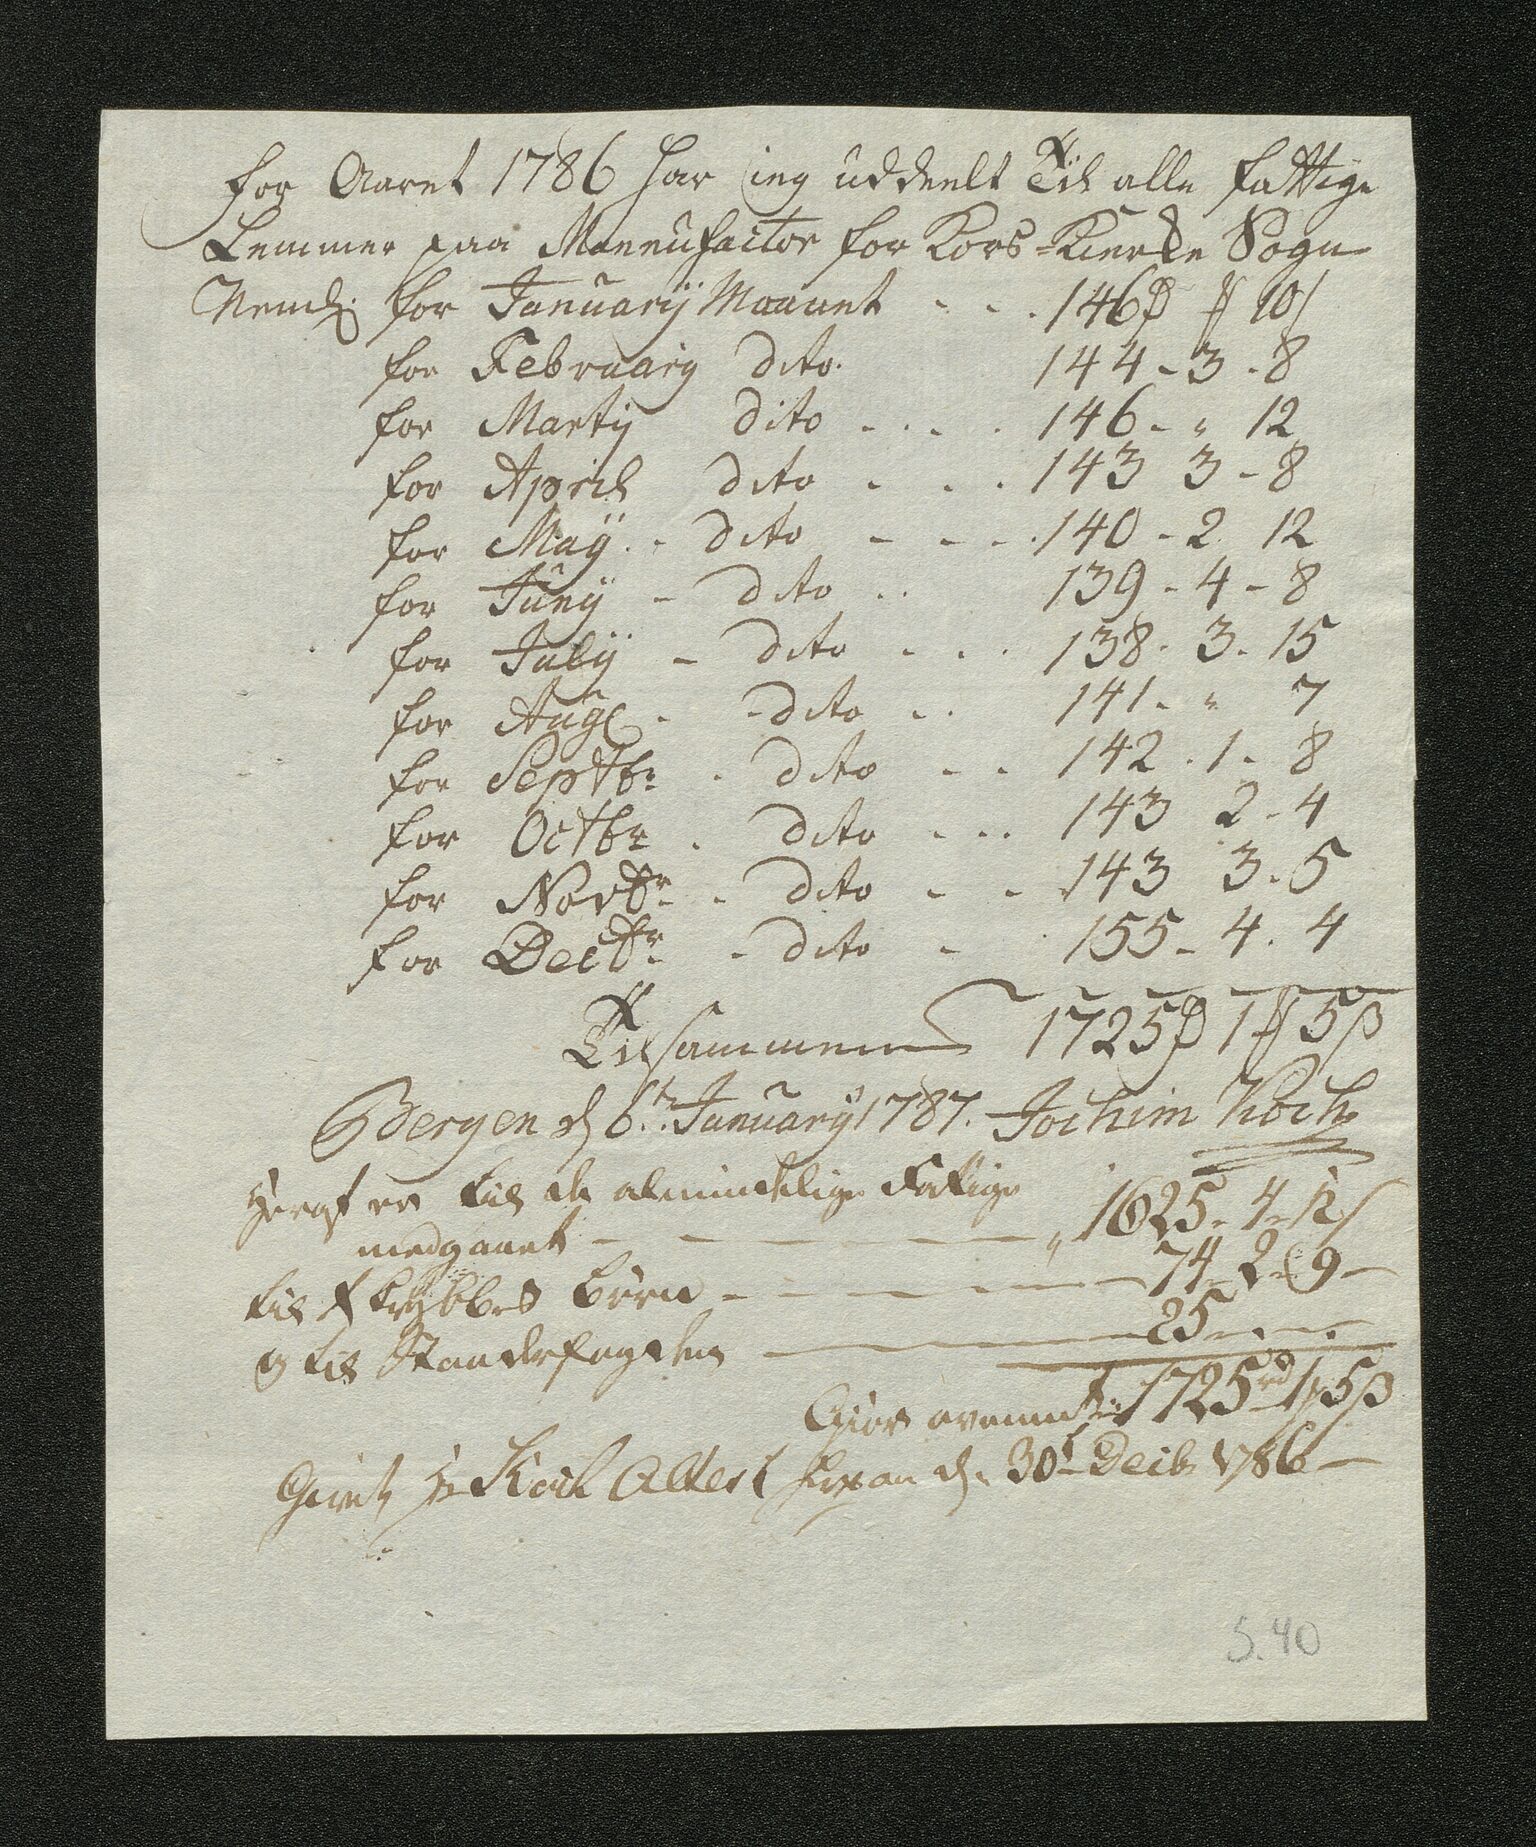 for Aaret 1786 har ieg uddeelt Til alle fattige
Lemmer paa Mannufactor for Kors-Kierke Sogn
Neml: for Januarij Maanet - - . 146 10
for Februarij dito. 144 - 3 - 8
for Martij dito - . - . 146 - " 12
for April dito - . - . 143 3 - 8
for Maij - dito - - - . 140 - 2 12
for Junij - dito . . 139 - 4 - 8
for Julij - dito - . . 138 - 3 - 15
for Aug - dito - . 141 - " 7
for Septbr - dito - - 142 . 1 - 8
for Octbr . dito - . . 143 2 - 4
for Novbr - dito - - . 143 3 - 5
for Decbr - dito - 155 - 4 . 4
Tilsammen 1725 1 5 ß
Bergen d 6te January 1787. Jochim Koch
Heraf er til de almindelige Fattige
medgaaet - - - - - " 1625 - 4 - 12
til Børn - - - - - 74 - 2 - 9 -
og til - - - 25 - - -
Giør 1725 rd 1 5 ß
Koch Attest d. 30t Decbr 1786 -
S. 40